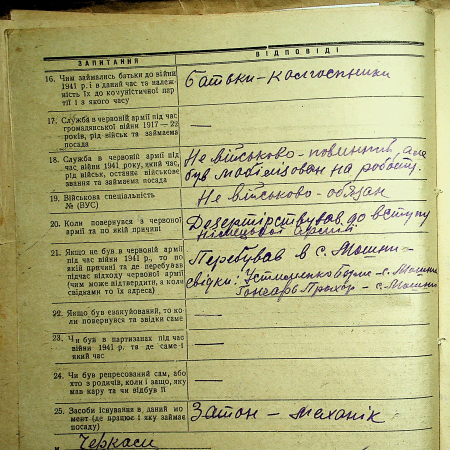 ЗАПИТАННЯ
ВІДПОВІДІ
16. Чим займались батьки до війни
1941 р. і в даний час та належ-
ність їх до комуністичної пар-
тії і з якого часу
Батьки – колгоспники
17. Служба в червоній армії під час
громадянської війни 1917—22
років, рід військ та займаєма
посада
—
18. Служба в червоній армії під
час війни 1941 року, який час,
рід військ, останнє військове
звання та займаєма посада
Не військово-повинний, але
був мобілізован на роботу.
19. Військова спеціальність
№ (ВУС)
Не військово-обязан
20. Коли повернувся з червоної
армії та по якій причині
Дезертірствував до вступу
німецької армії
21. Якщо не був в червоній армії
під час війни 1941 р., то по
якій причині та де перебував
підчас відходу червоної армії
(чим може підтвердити, а коли
свідками то їх адреса)
Перебував в с. Мошни-
свідки: Устименко Борис – с. Мошни
Гончарь Прохор – с. Мошни
22. Якщо був евакуйований, то ко-
ли повернувся та звідки саме
—
23. Чи був в партизанах під час
війни 1941 р. та де саме і
який час
—
24. Чи був репресований сам, або
хто з родичів, коли і защо, яку
мав кару та чи відбув її
—
25. Засоби існування в даний мо-
мент (де працює і яку займає
посаду)
Затон – механік
Черкаси